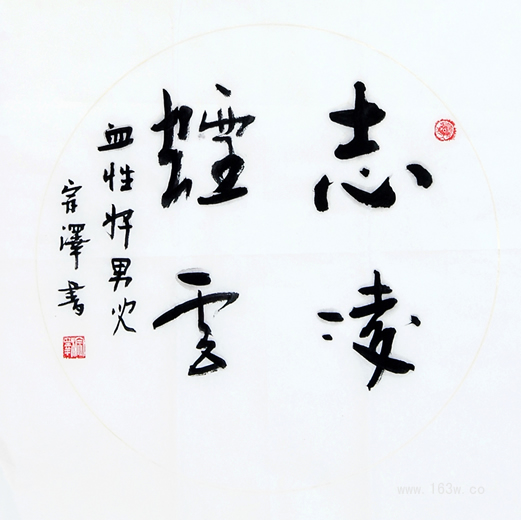 志凌
煙雲
血性好男兒
澤書
www.163w.co